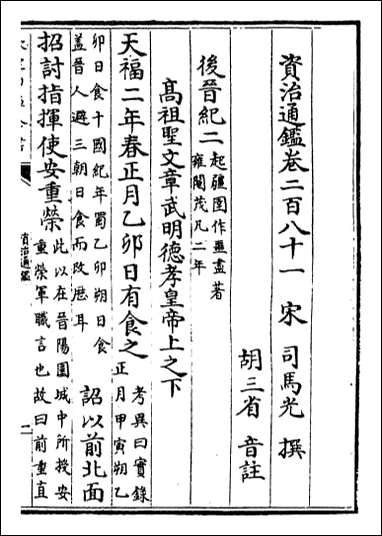 資治通鑑卷二百八十一 宋 司馬光 撰
胡三省 音註
後晉紀二 起彊圉作噩盡著
雍閹茂凡二年
高祖聖文章武明德孝皇帝上之下
天福二年春正月乙卯日有食之 考異曰實錄
正月甲寅朔乙
卯日食十國紀年蜀乙卯朔日食
蓋晉人避三朝日食而改厯耳
詔以前北面
招討指揮使安重榮 此以在晉陽圍城中所授安
重榮軍職言也故曰前重直
資治通鑑